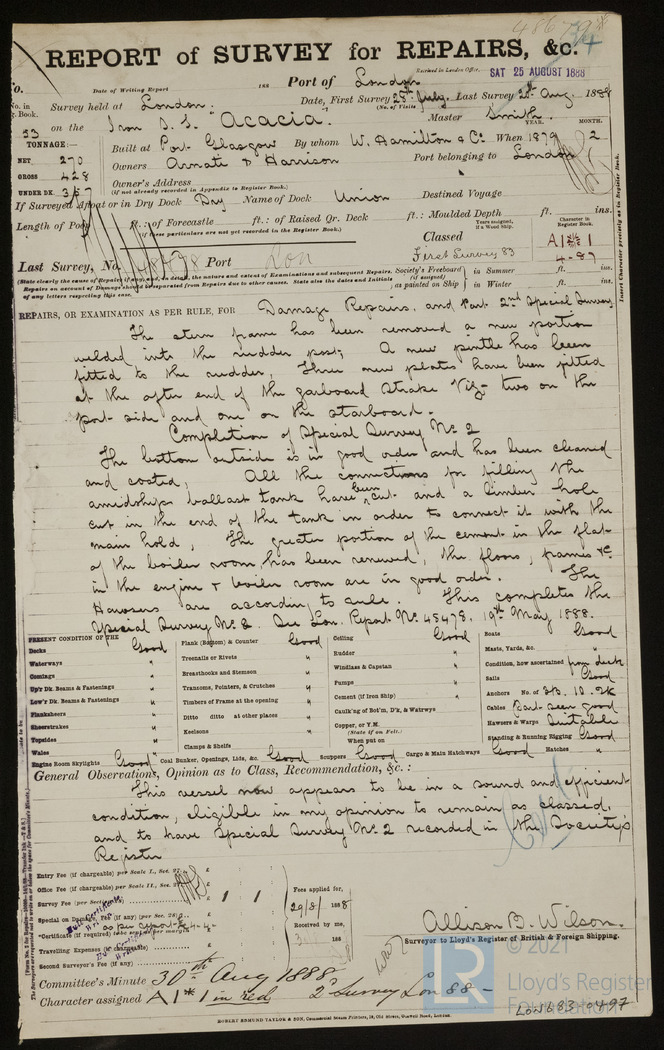 REPORT of SURVEY for REPAIRS, &c.
Received in London Office, SAT 25 AUGUST 1888
Date of Writing Report 188 Port of London
No. in Reg. Book. Survey held at London. Date, First Survey 28th July, Last Survey 24th Aug. 1888
(No. of Visits)
53 on the Iron S.S. "Acacia" Master Smith.
TONNAGE:— Built at Port Glasgow By whom W. Hamilton & Co. When 1879 2
YEAR. MONTH.
NET 270
GROSS 428
UNDER DK. 357
Owners Armati & Harrison Port belonging to London
Owner's Address
(if not already recorded in Appendix to Register Book.)
If Surveyed Afloat or in Dry Dock Dry Name of Dock Union Destined Voyage
Length of Poop ft.: of Forecastle ft.: of Raised Qr. Deck ft.: Moulded Depth ft. ins.
(if these particulars are not yet recorded in the Register Book.)
Years assigned, if a Wood Ship.
Character in Register Book.
Classed First Survey 83
A1 1
4-87
Last Survey, No. 48478 Port Lon
(State clearly the cause of Repairs if any; and, in detail, the nature and extent of Examinations and subsequent Repairs.
Repairs on account of Damage should be separated from Repairs due to other causes. State also the dates and Initials
of any letters respecting this case.
Society's Freeboard (if assigned) as painted on Ship
in Summer ft. ins.
in Winter ft. ins.
Insert Character precisely as in Register Book.
REPAIRS, OR EXAMINATION AS PER RULE, FOR Damage Repairs, and Part 2nd Special Survey
The stern frame has been removed a new portion
welded into the rudder post, A new pintle has been
fitted to the rudder, Three new plates have been fitted
at the after end of the garboard strake Viz- two on the
port side and one on the starboard.
Completion of Special Survey No. 2
The bottom outside is in good order and has been cleaned
and coated, All the connections for filling the
amidships ballast tank have been cut and a limber hole
cut in the end of the tank in order to connect it with the
main hold, The greater portion of the cement in the flat
of the boiler room has been renewed, the floors, frames &c
in the engine & boiler room are in good order. The
Hawsers are according to rule. This completes the
Special Survey No. 2. See Lon. Report No. 48478. 19th May 1888.
PRESENT CONDITION OF THE
Decks Good
Waterways "
Comings "
Up'r Dk. Beams & Fastenings "
Low'r Dk. Beams & Fastenings "
Planksheers "
Sheerstrakes "
Topsides "
Wales "
Engine Room Skylights Good
Plank (Bottom) & Counter Good
Treenails or Rivets "
Breasthooks and Stemson "
Transoms, Pointers, & Crutches "
Timbers of Frame at the opening "
Ditto ditto at other places "
Keelsons "
Clamps & Shelfs "
Coal Bunker, Openings, Lids, &c. Good
Ceiling Good
Rudder "
Windlass & Capstan "
Pumps "
Cement (if Iron Ship) "
Caulk'ng of Bot'm, D'k, & Watrwys
Copper, or Y.M.
(State if on Felt.)
When put on
Scuppers Good
Cargo & Main Hatchways Good
Boats Good
Masts, Yards, &c. "
Condition, how ascertained from deck
Sails Good
Anchors No. of 3B. 1S. 2K
Cables Part seen good
Hawsers & Warps Suitable
Standing & Running Rigging Good
Hatches "
General Observations, Opinion as to Class, Recommendation, &c.:
This vessel now appears to be in a sound and efficient
condition, eligible in my opinion to remain as classed,
and to have Special Survey No. 2 recorded in the Society's
Register
Entry Fee (if chargeable) per Scale I., Sec. 27 £
Office Fee (if chargeable) per Scale II., Sec. 27 £
Survey Fee (per Section) £ 1 1
Special on Damage Fee (if any) (per Sec. 28) £ as per report 4-4-
Certificate (if required) to be sent as per margin
Travelling Expenses (if chargeable) £
Second Surveyor's Fee (if any) £
Fees applied for,
29/8/ 1888
Received by me,
188
Allison B. Wilson.
Surveyor to Lloyd's Register of British & Foreign Shipping.
Committee's Minute 30th Aug 1888
Character assigned A1*1 in red 2d Survey Lon 88 -
ROBERT EDMUND TAYLOR & SON, Commercial Steam Printers, 19, Old Street, Goswell Road, London.
LR
© 2021
Lloyd's Register
Foundation
LON683-0497